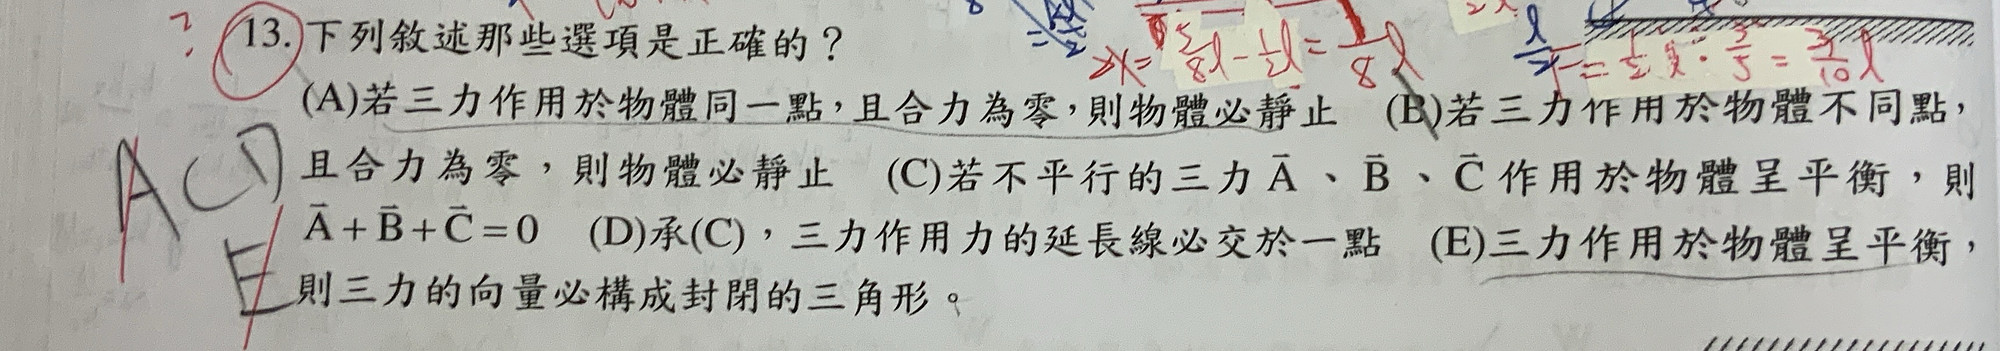 13. 下列敘述那些選項是正確的？
(A)若三力作用於物體同一點，且合力為零，則物體必靜止 (B)若三力作用於物體不同點，
且合力為零，則物體必靜止 (C)若不平行的三力 A⃗、B⃗、C⃗ 作用於物體呈平衡，則
A⃗+B⃗+C⃗=0 (D)承(C)，三力作用力的延長線必交於一點 (E)三力作用於物體呈平衡，
則三力的向量必構成封閉的三角形。
?
ACD
E
x= 5/8 l - 1/2 l = 1/8 l
= 1/2 l · 3/5 = 3/10 l